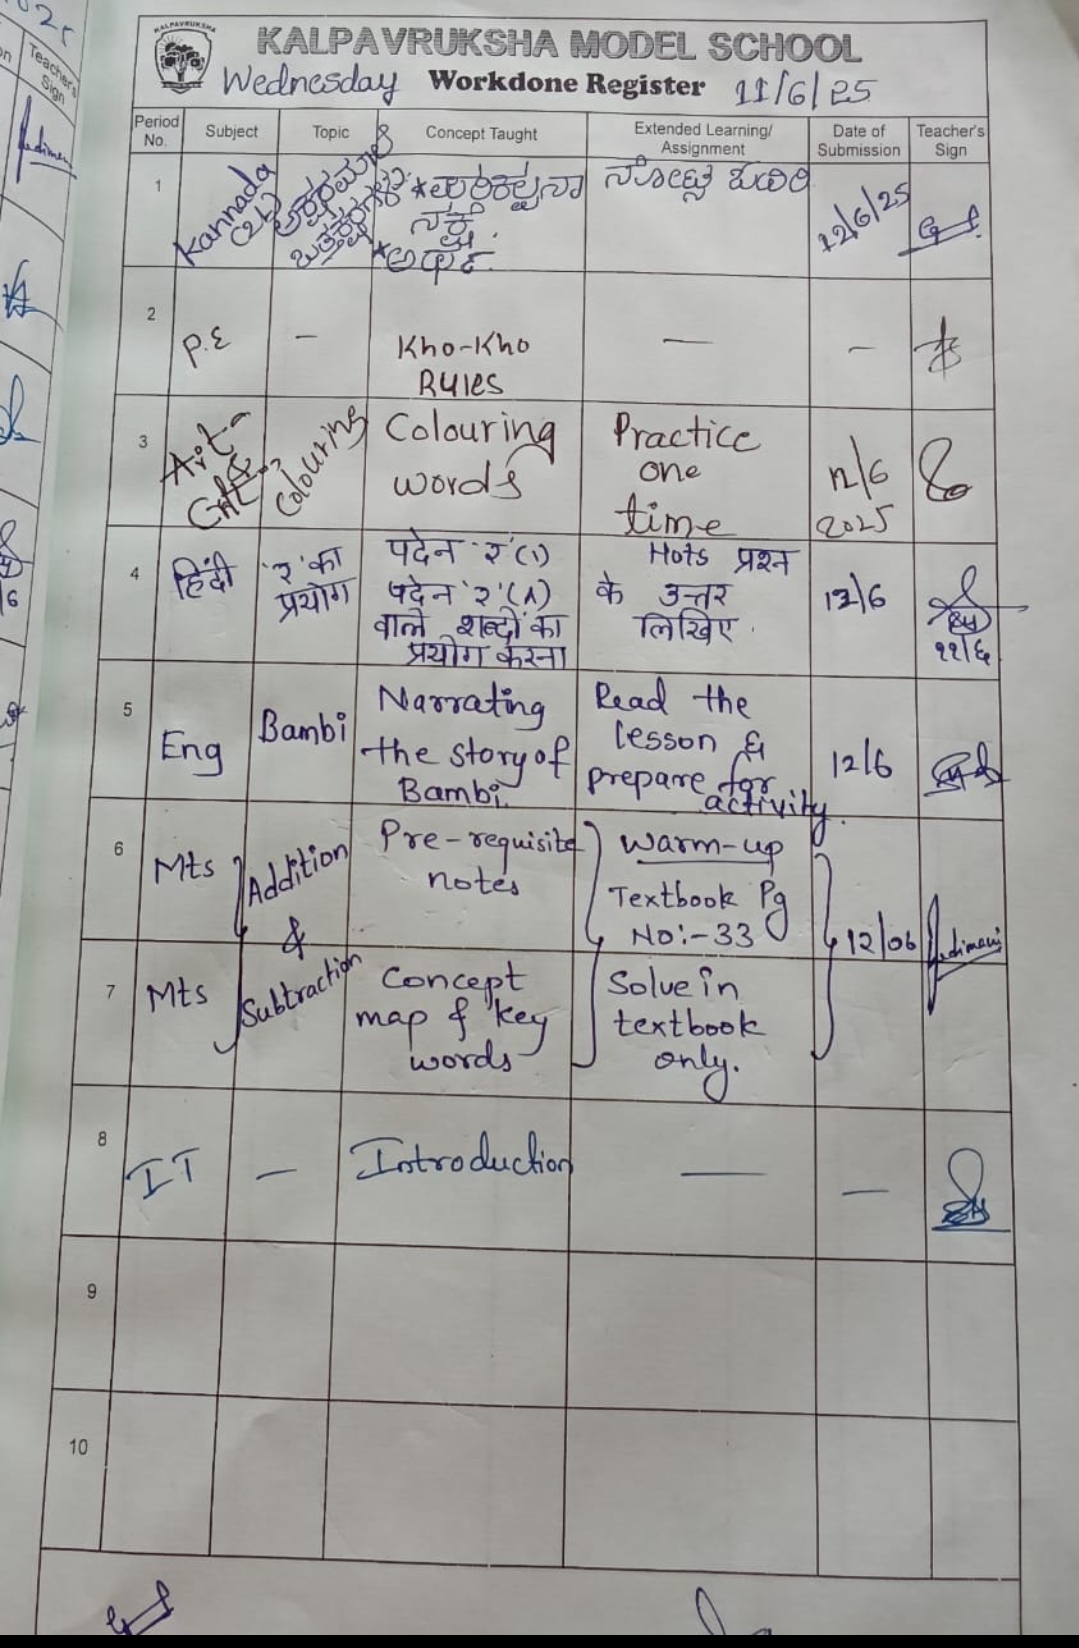 KALPAVRUKSHA
KALPAVRUKSHA MODEL SCHOOL
Wednesday Workdone Register 11/6/25
Period No. Subject Topic Concept Taught Extended Learning/ Assignment Date of Submission Teacher's Sign
1 Kannada (2L) ಅಕ್ಷರಮಾಲೆ ಒತ್ತಕ್ಷರಗಳು *ಪರಿಕಲ್ಪನಾ
ನಕ್ಷೆ.
*ಅರ್ಥ. 12/6/25
2 P.E — Kho-Kho
Rules — —
3 Art & Craft Colouring Colouring
words Practice
one
time 12/6
2025
4 हिंदी 'र' का
प्रयोग पदेन 'र' (्र)
पदेन 'र'
वाले शब्दों का
प्रयोग करना Hots प्रश्न
के उत्तर
लिखिए. 12/6
११/६
5 Eng Bambi Narrating
the story of
Bambi. Read the
lesson &
prepare for
activity. 12/6
6 Mts Addition
&
Subtraction Pre-requisite
notes Warm-up
Textbook Pg
No:-33 12/06
7 Mts Concept
map & key
words Solve in
textbook
only.
8 IT — Introduction — —
9
10
Teacher's
Sign